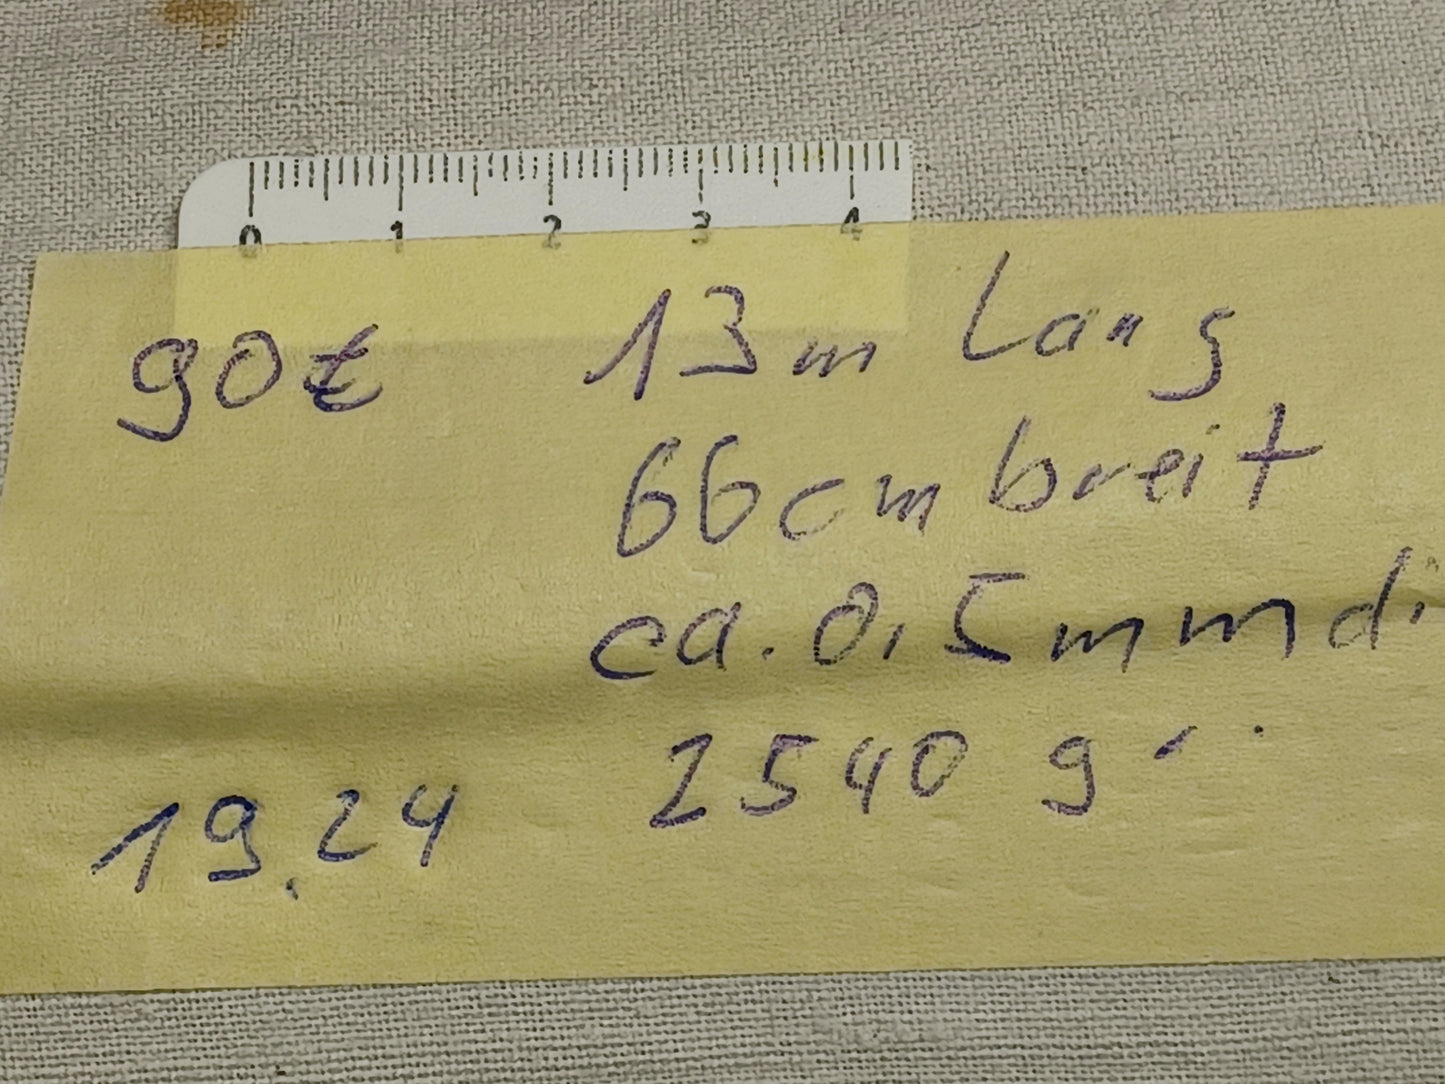 0 1 2 3 4
90€ 13m lang
66cm breit
ca. 0,5mm
2540 g
19.24